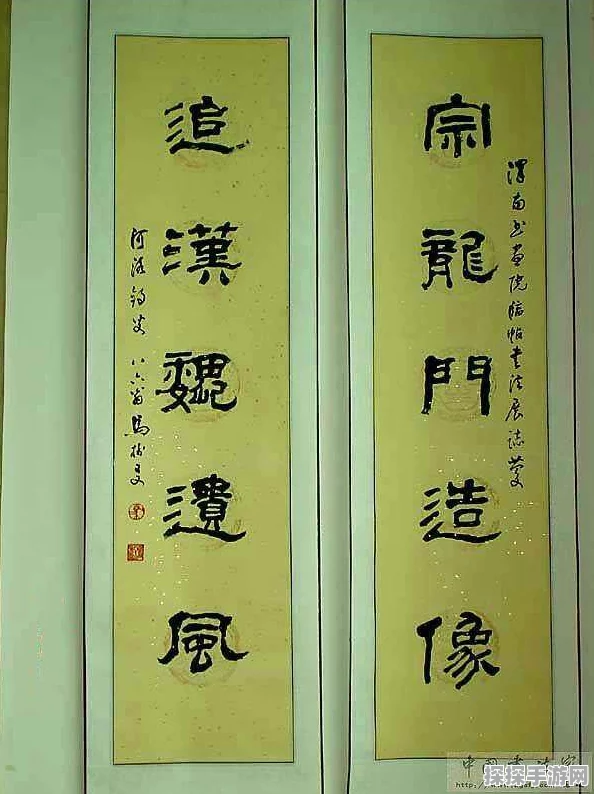 宗龍門造像
渭南书画院临帖书法展志庆
追漢魏遺風
八六翁馬樹
中国书法家
探探手游网